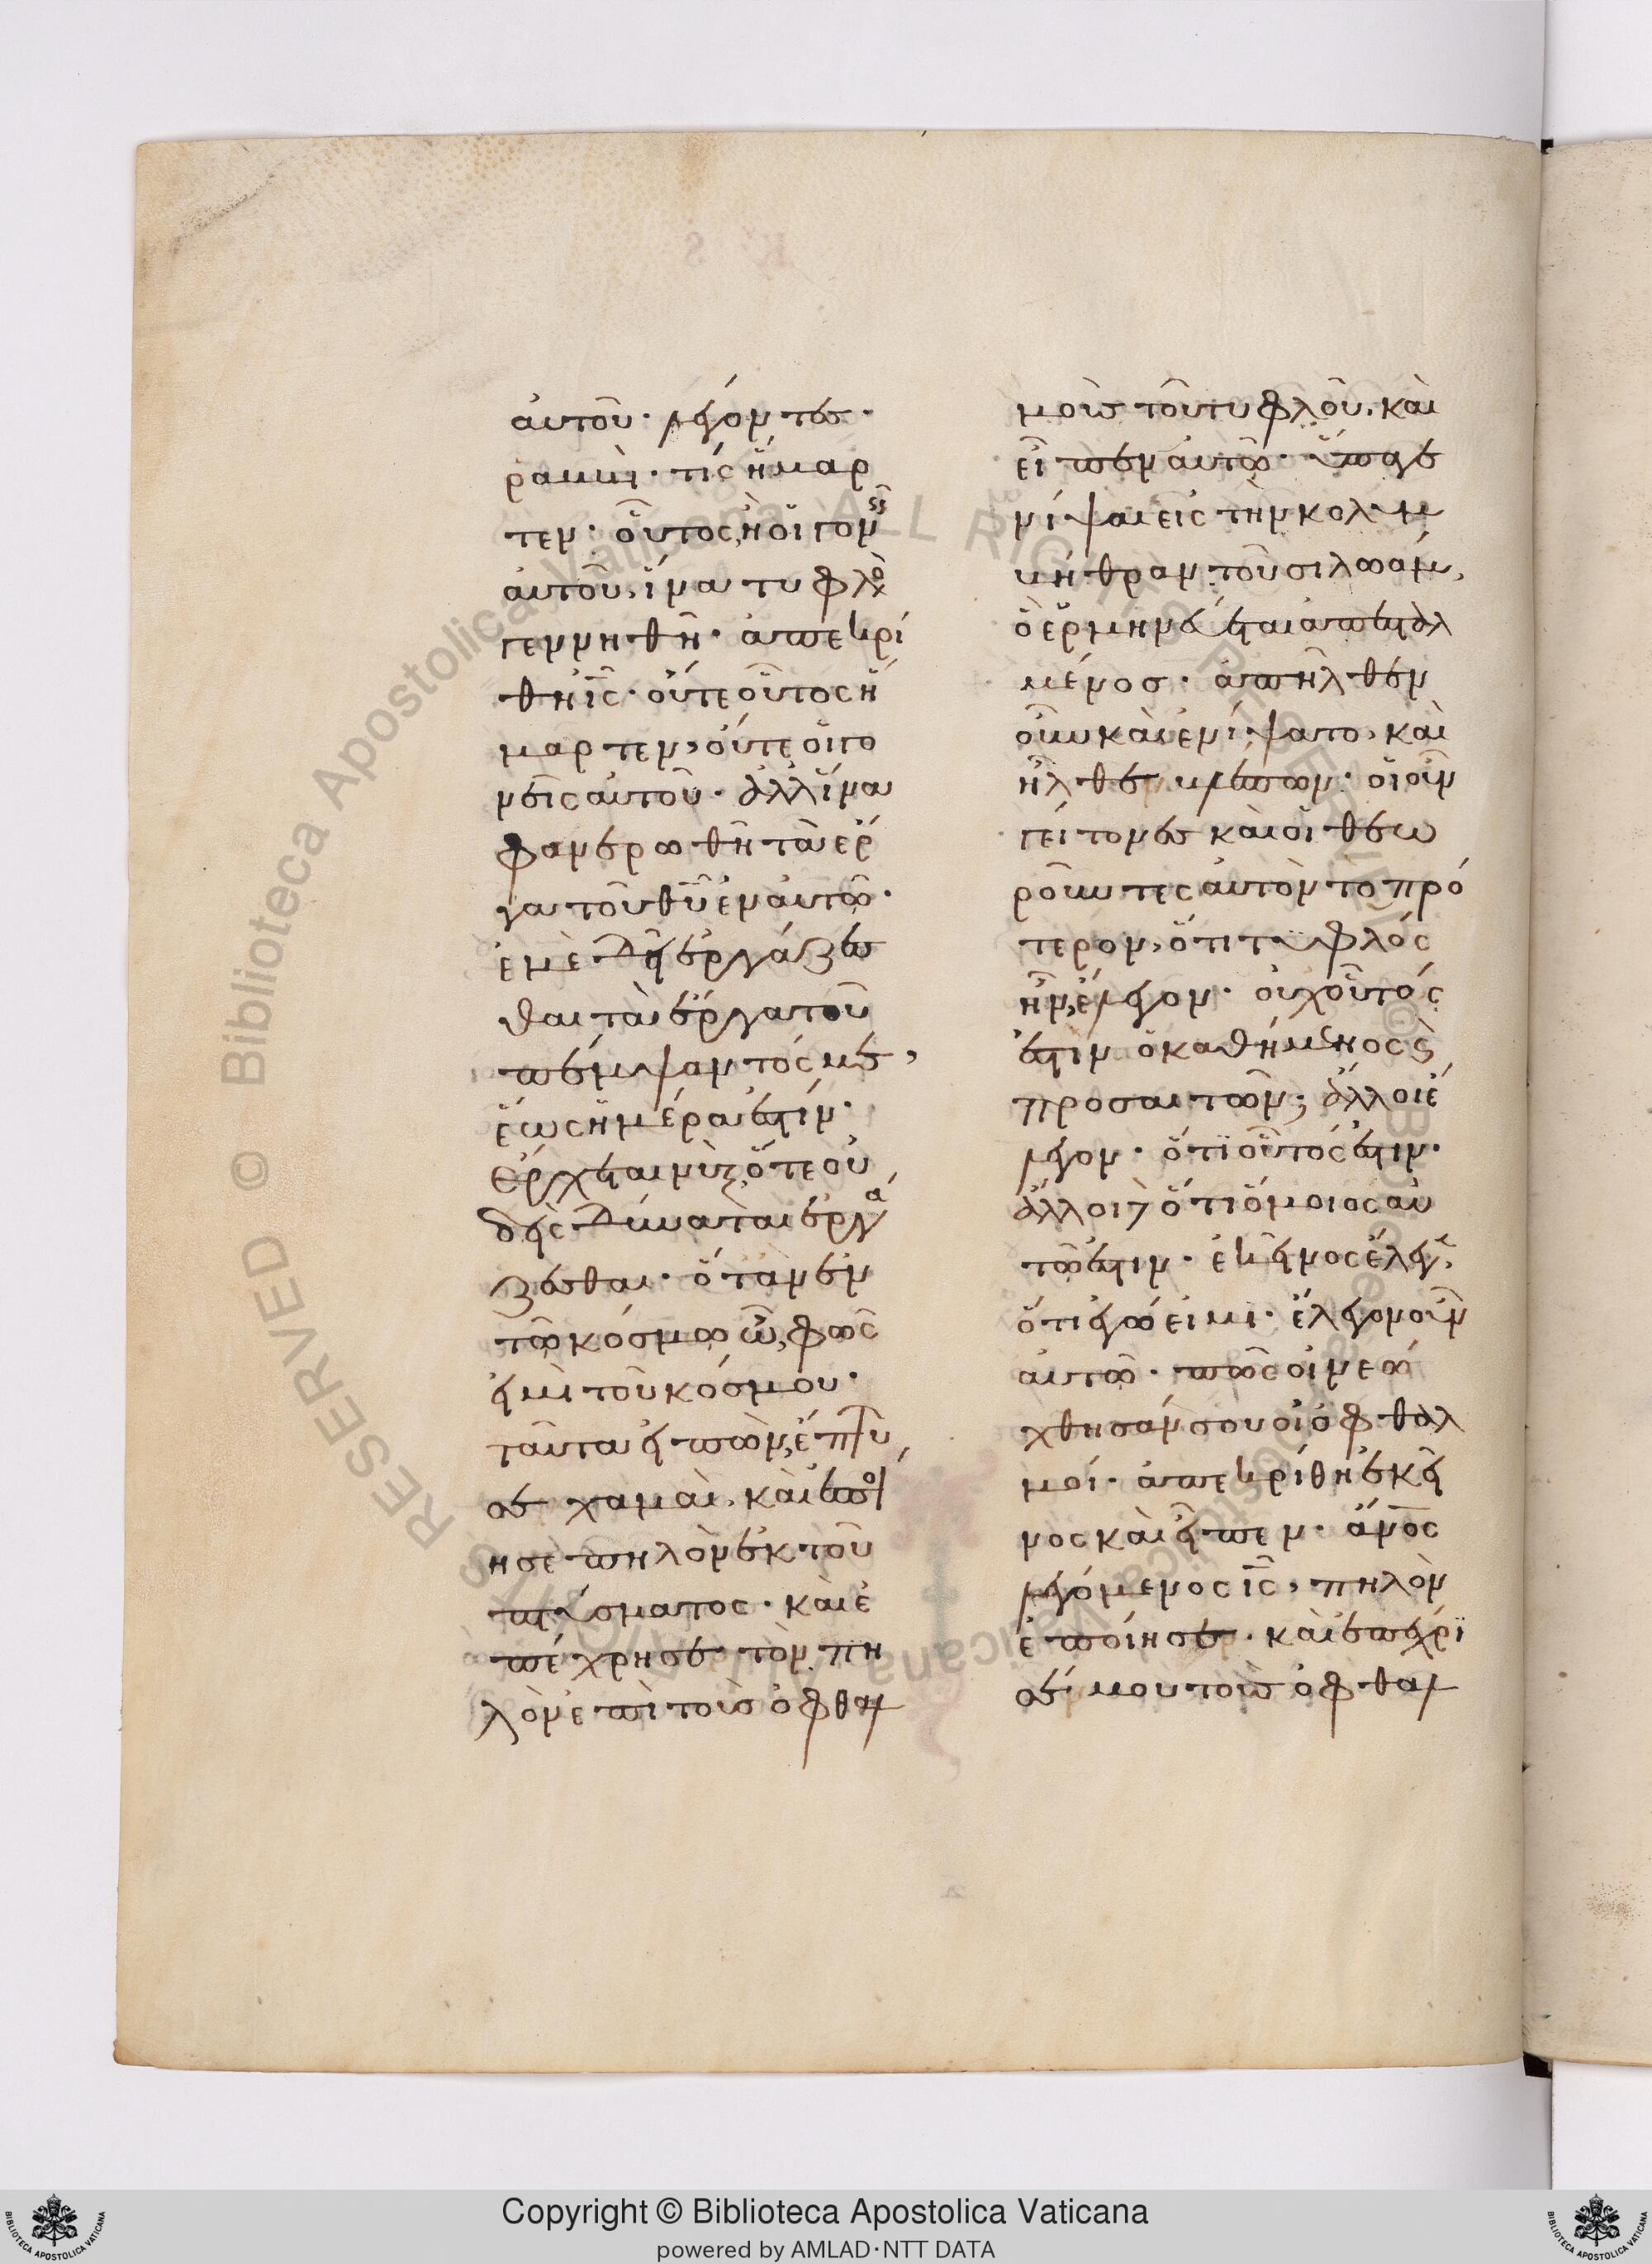 αὐτοῦ· λέγοντες·
ῥαββί· τίς ἥμαρ
τεν· οὗτος, ἢ οἱ γονεῖς
αὐτοῦ, ἵνα τυφλὸς
γεννηθῆ· ἀπεκρί
θη ἰς· οὔτε οὗτος ἥ
μαρτεν, οὔτε οἱ γο
νεῖς αὐτοῦ· ἀλλ ἵνα
φανερωθῆ τὰ ἔρ
γα τοῦ θυ ἐν αὐτῶ·
ἐμὲ δεῖ ἐργάζεσ
θαι τὰ ἔργα τοῦ
πέμψαντός με,
ἕως ἡμέρα ἐστίν·
ἔρχεται νὺξ ὅτε οὐ
δεὶς δύναται ἐργά
ζεσθαι· ὅταν ἐν
τῶ κόσμω ὦ, φῶς
εἰμι τοῦ κόσμου·
ταῦτα εἰπὼν, ἔπτυ
σε χαμαὶ, καὶ ἐποί
ησε πηλὸν ἐκ τοῦ
πτύσματος· καὶ ἐ
πέχρησε τὸν πη
λὸν ἐπὶ τοὺς ὀφθαλ
μοὺς τοῦ τυφλοῦ, καὶ
εἶπεν αὐτῶ· ὕπαγε
νίψαι εἰς τὴν κολυμ
βήθραν τοῦ σιλωάμ,
ὃ ἑρμηνεύεται ἀπεσταλ
μένος· ἀπῆλθεν
οὖν καὶ ἐνίψατο, καὶ
ἦλθε βλέπων· οἱ οὖν
γείτονες καὶ οἱ θεω
ροῦντες αὐτὸν τὸ πρό
τερον, ὅτι τυφλός
ἦν, ἔλεγον· οὐχ οὗτός
ἐστιν ὁ καθήμενος ϛ
προσαιτῶν; ἄλλοι ἔ
λεγον· ὅτι οὗτός ἐστιν·
ἄλλοι δὲ ὅτι ὅμοιος αὐ
τῶ ἐστιν· ἐκεῖνος ἔλεγεν,
ὅτι ἐγώ εἰμι· ἔλεγον οὖν
αὐτῶ· πῶς οἰνεώ
χθησάν σου οἱ ὀφθαλ
μοί· ἀπεκρίθη ἐκεῖ
νος καὶ εἶπεν· ἄνος
λεγόμενος ἰς, πηλὸν
ἐποίησε· καὶ ἐπέχρι
σέ μου τοὺς ὀφθαλ